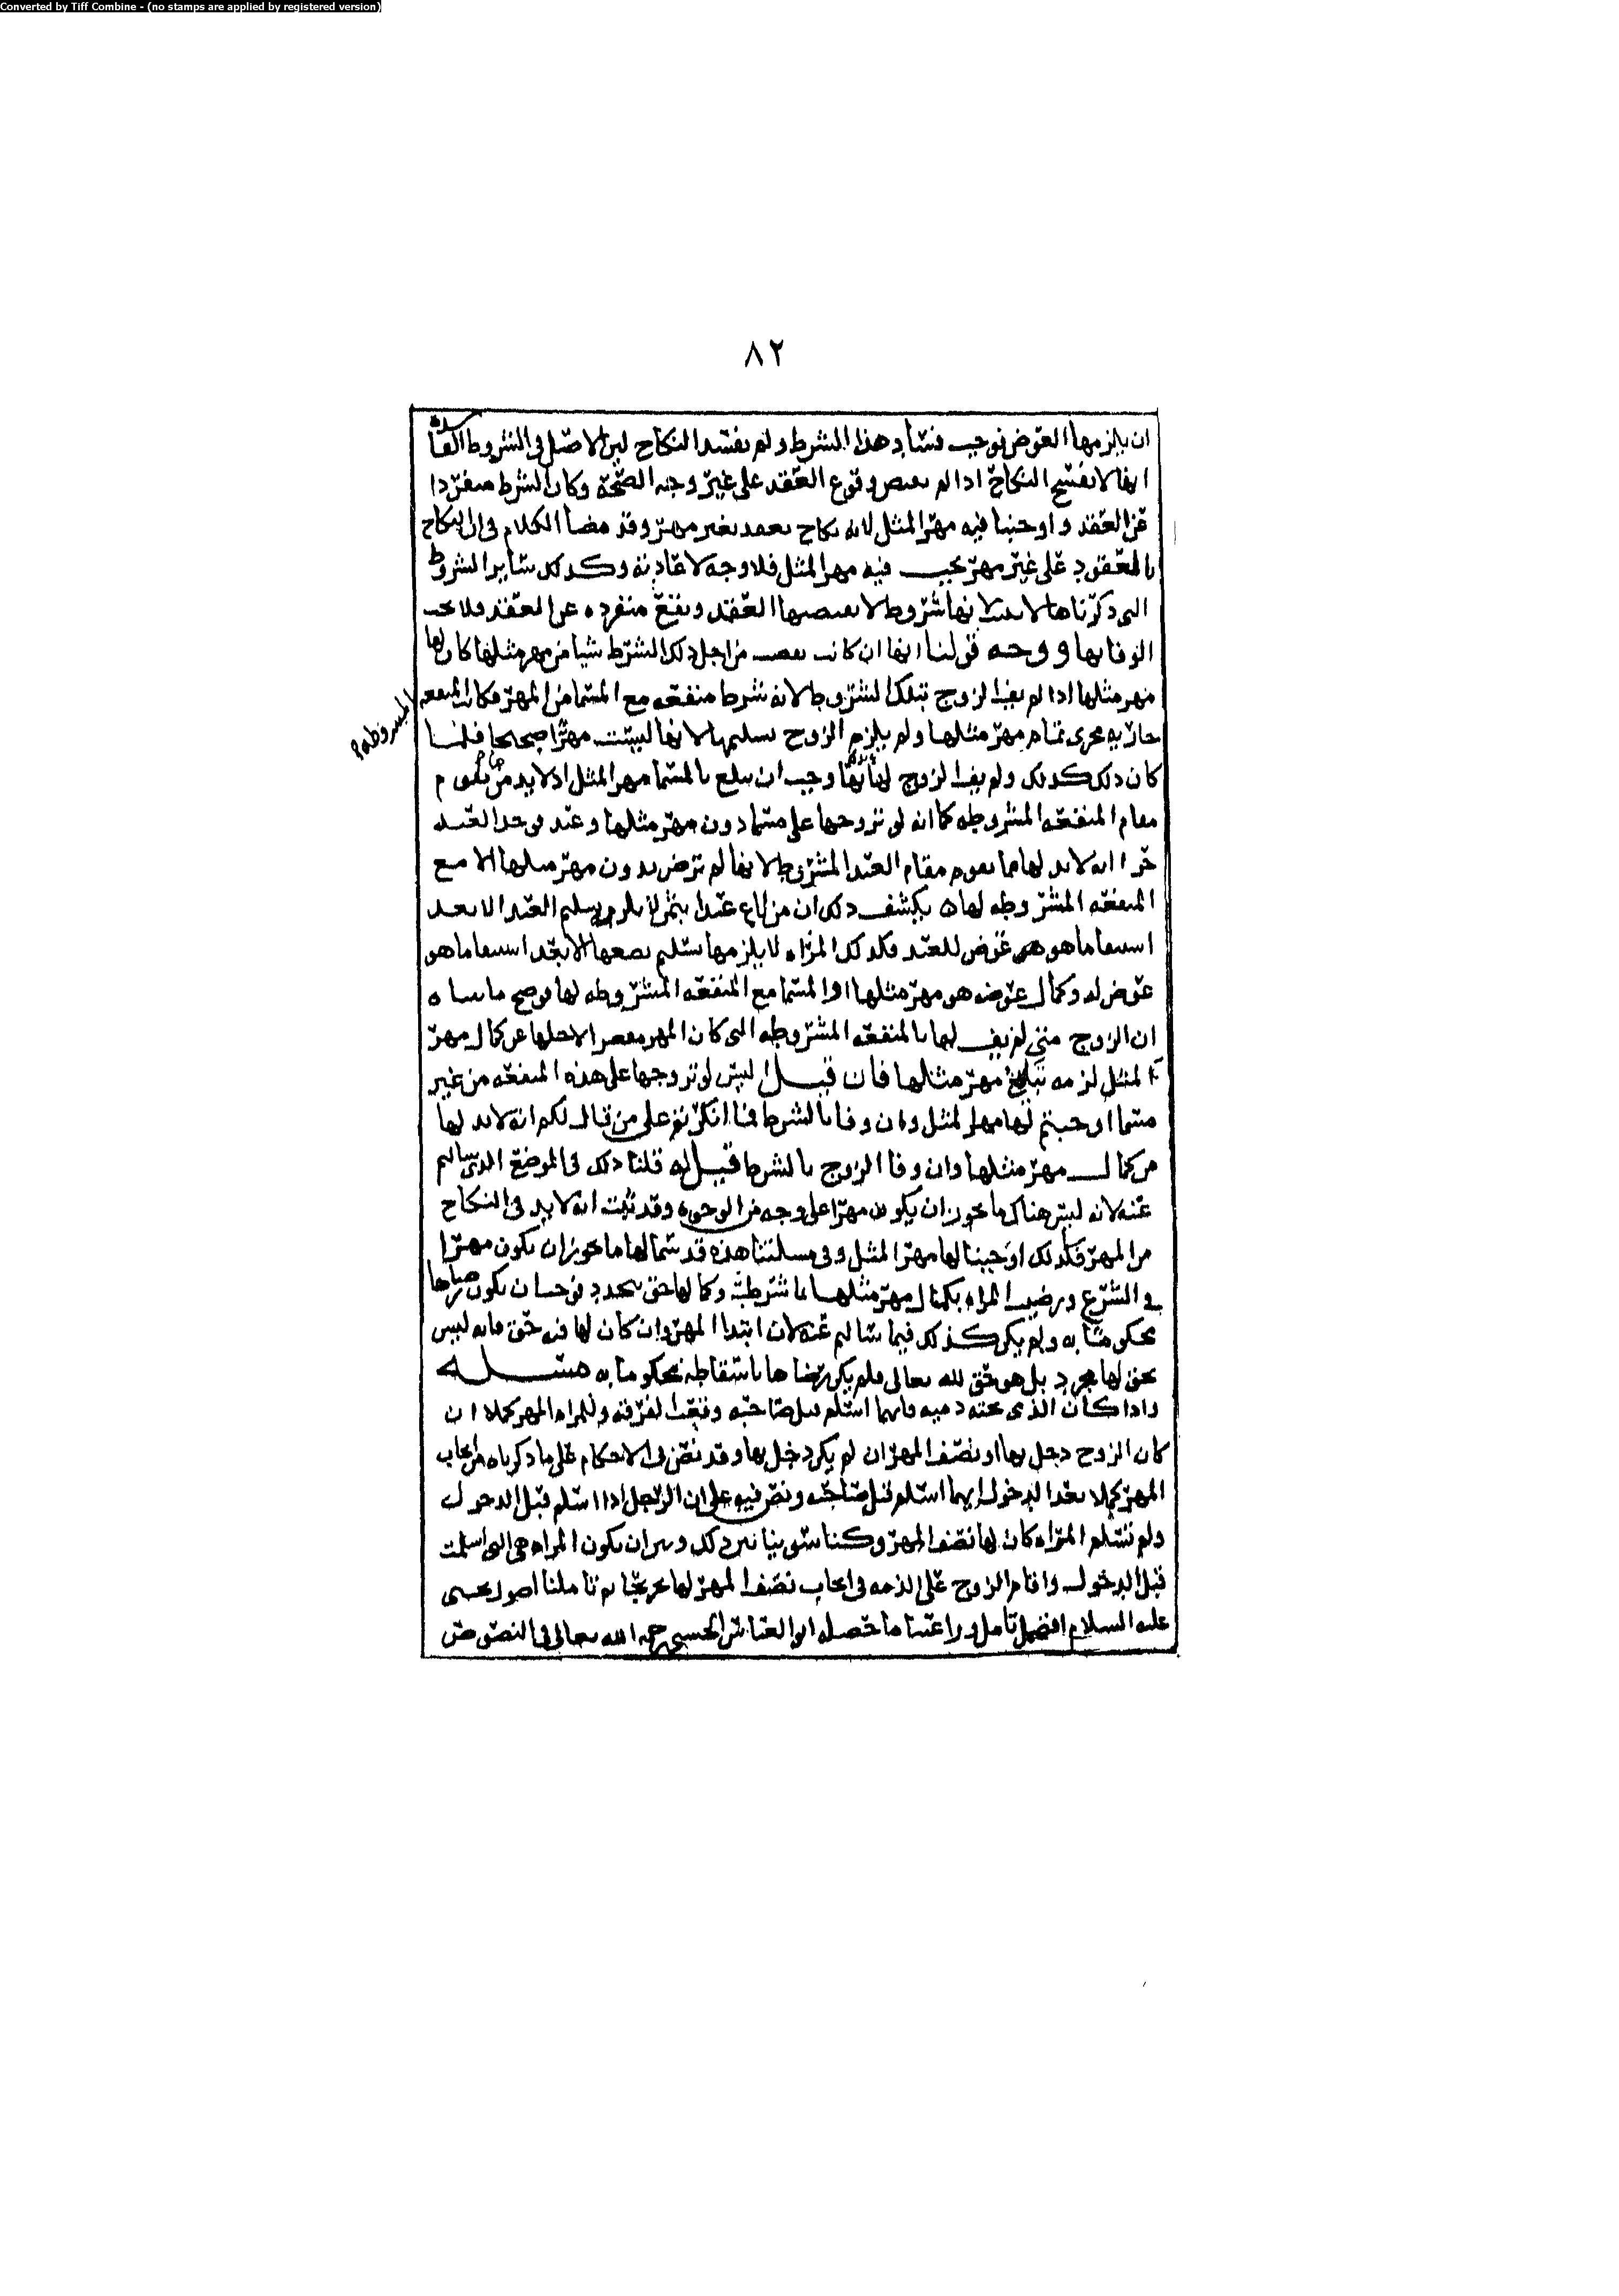 Converted by Tiff Combine - (no stamps are applied by registered version)
٨٢
ان يلزمها العوض فوجب فساد هذا الشرط ولم يفسد النكاح لان الاصل في الشروط الفاسده
انها لا تفسخ النكاح اذا لم يقتض وقوع العقد على غير وجه الصحة وكان الشرط منفردا
عن العقد واوجبنا فيه مهر المثل لانه نكاح بعقد بغير مهر وقد مضا الكلام في ان النكاح
المعقود على غير مهر يجب فيه مهر المثل فلا وجه لاعادته وكذلك ساير الشروط
التي ذكرناها لا لانها شروط لا يقتضيها العقد وتقع منفرده عن العقد فلا يجب
الوفا بها ووجه قولنا انها ان كانت نقصت من اجل ذلك الشرط شيا من مهر مثلها كان لها
مهر مثلها اذا لم يف الزوج بتلك الشروط لانه شرط منفعه مع المسما من المهر فكانت المنفعه
المشروطه
جاريه مجرى تمام مهر مثلها ولم يلزم الزوج تسليمها لانها ليست مهرا صحيحا فلما
كان ذلك كذلك ولم يف الزوج لها بها وجب ان يبلغ بالمسما مهر المثل اذ لا بد من ما يقوم
مقام المنفعه المشروطه كما انه لو تزوجها على مسما دون مهر مثلها وعبد فوجد العبد
حرا انه لا بد لها مما يقوم مقام العبد المشروط لانها لم ترض بدون مهر مثلها الا مع
المنفعه المشروطه لها يكشف ذلك ان من باع عبدا بثمن لم يلزمه تسليم العبد الا بعد
استيفا ما هو عوض للعبد فكذلك المراه لا يلزمها تسليم بضعها الا بعد استيفا ما هو
عوض له وكمال عوضه هو مهر مثلها او المسما مع المنفعه المشروطه لها فوضح ما بيناه
ان الزوج متى لم يف لها بالمنفعه المشروطه التي كان المهر مقصرا لاجلها عن كمال مهر
المثل لزمه تبليغ مهر مثلها فان قيل اليس لو تزوجها على هذه المنفعه من غير
مسما اوجبتم لها مهر المثل وان وفا بالشرط فما انكرتم على من قال لكم انه لا بد لها
من كمال مهر مثلها وان وفا الزوج بالشرط قيل له قلنا ذلك في الموضع الذي سالتم
عنه لانه ليس هناك ما يجوز ان يكون مهرا على وجه من الوجوه وقد ثبت انه لا بد في النكاح
من المهر فكذلك اوجبنا لها مهر المثل وفي مسئلتنا هذه قد سما لها ما يجوز ان يكون مهرا
في الشرع ورضيت المراه بكمال مهر مثلها بما شرطت وكمالها حق فوجب ان يكون رضاها
محكوما به ولم يكن كذلك فيما سالتم عنه لان ابتدا المهر وان كان لها فيه حق فانه ليس
بحق لها مجرد بل هو حق لله تعالى فلم يكن رضاها باسقاطه محكوما به مسئله
واذا كان الذمي تحته ذميه فايهما اسلم قبل صاحبه وقعت الفرقه وللمراه المهر كملا ان
كان الزوج دخل بها او نصف المهر ان لم يكن دخل بها وقد نص في الاحكام على ما ذكرناه من ايجاب
المهر كملا بعد الدخول ايهما اسلم قبل صاحبه ونص فيه على ان الرجل اذا اسلم قبل الدخول
ولم تسلم المراه كان لها نصف المهر وكنا سوينا بين ذلك وبين ان تكون المراه هي التي اسلمت
قبل الدخول واقام الزوج على الذمه في ايجاب نصف المهر لها تخريجا ثم تاملنا اصول يحيى
عليه السلام افضل تامل وراعينا ما حصله ابو العباس الحسني رحمه الله تعالى في النصوص